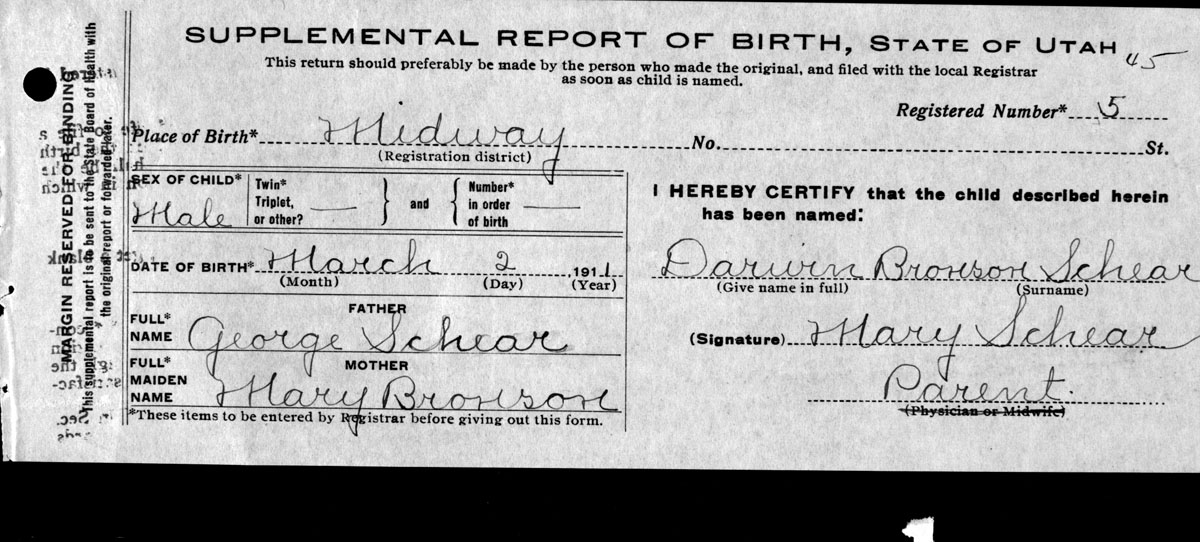 SUPPLEMENTAL REPORT OF BIRTH, STATE OF UTAH
45
This return should preferably be made by the person who made the original, and filed with the local Registrar
as soon as child is named.
Registered Number* 5
Place of Birth* Midway No. St.
(Registration district)
SEX OF CHILD* Male
Twin* Triplet, or other?
and
Number* in order of birth
DATE OF BIRTH* March 2 1911
(Month) (Day) (Year)
FATHER
FULL* NAME George Schear
MOTHER
FULL* MAIDEN NAME Mary Bronson
*These items to be entered by Registrar before giving out this form.
I HEREBY CERTIFY that the child described herein
has been named:
Darwin Bronson Schear
(Give name in full) (Surname)
(Signature) Mary Schear
Parent.
(Physician or Midwife)
MARGIN RESERVED FOR BINDING
This supplemental report is to be sent to the State Board of Health with
the original report or forwarded later.